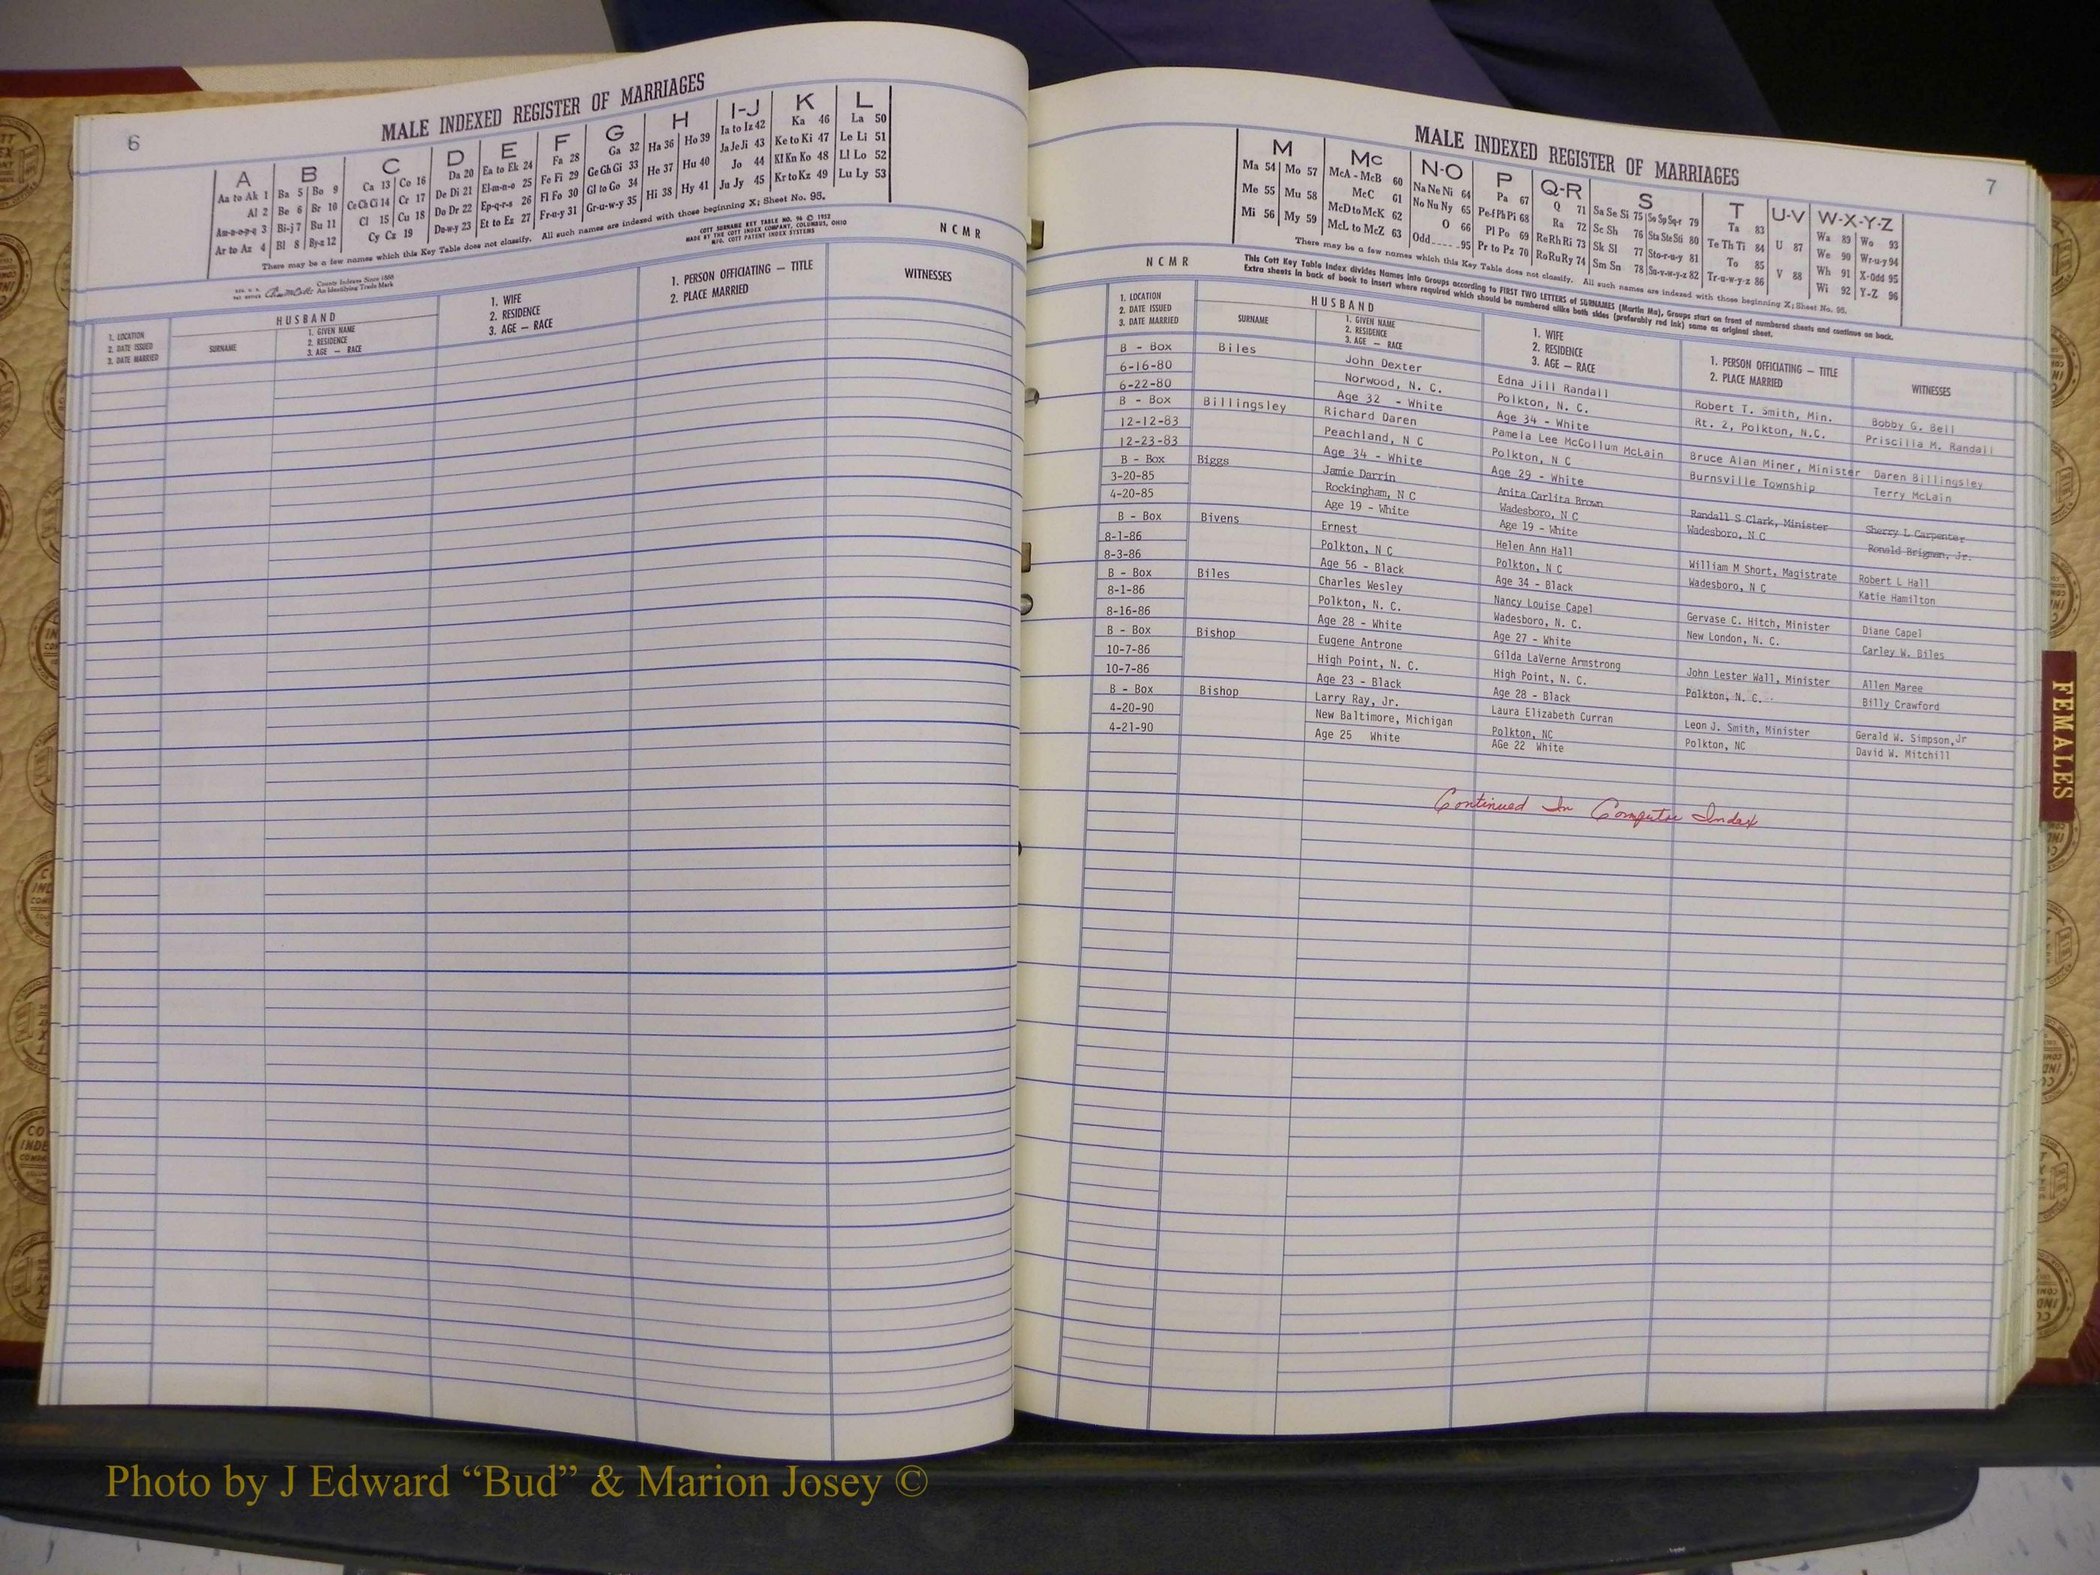 6
MALE INDEXED REGISTER OF MARRIAGES
A B C D E F G H I-J K L
Aa to Ak 1 Ba 5 Bo 9 Ca 13 Co 16 Da 20 Ea to Ek 24 Fa 28 Ga 32 Ha 36 Ho 39 Ia to Iz 42 Ka 46 La 50
Al 2 Be 6 Br 10 Ce Ch Ci 14 Cr 17 De Di 21 El-m-n-o 25 Fe Fi 29 Ge Gh Gi 33 He 37 Hu 40 Ja Je Ji 43 Ke to Ki 47 Le Li 51
Am-n-o-p-q 3 Bi-j 7 Bu 11 Cl 15 Cu 18 Do Dr 22 Ep-q-r-s 26 Fl Fo 30 Gl to Go 34 Hi 38 Hy 41 Jo 44 Kl Kn Ko 48 Ll Lo 52
Ar to Az 4 Bl 8 By-z 12 Cy Cz 19 Du-w-y 23 Et to Ez 27 Fr-u-y 31 Gr-u-w-y 35 Ju Jy 45 Kr to Kz 49 Lu Ly 53
There may be a few names which this Key Table does not classify. All such names are indexed with those beginning X; Sheet No. 95.
County Indexes Since 1888
An Identifying Trade Mark
COTT SURNAME KEY TABLE NO. 96 © 1952
MADE BY THE COTT INDEX COMPANY, COLUMBUS, OHIO
MFG. COTT PATENT INDEX SYSTEMS
NCMR
1. LOCATION
2. DATE ISSUED
3. DATE MARRIED
HUSBAND
SURNAME
1. GIVEN NAME
2. RESIDENCE
3. AGE — RACE
1. WIFE
2. RESIDENCE
3. AGE — RACE
1. PERSON OFFICIATING — TITLE
2. PLACE MARRIED
WITNESSES
7
MALE INDEXED REGISTER OF MARRIAGES
M Mc N-O P Q-R S T U-V W-X-Y-Z
Ma 54 Mo 57 McA - McB 60 Na Ne Ni 64 Pa 67 Q 71 Sa Se Si 75 So Sp Sq-r 79 Ta 83 U 87 Wa 89 Wo 93
Me 55 Mu 58 McC 61 No Nu Ny 65 Pe-f Ph Pi 68 Ra 72 Sc Sh 76 Sta Ste Sti 80 Te Th Ti 84 V 88 We 90 Wr-u-y 94
Mi 56 My 59 McD to McK 62 O 66 Pl Po 69 Re Rh Ri 73 Sk Sl 77 Sto-r-u-y 81 To 85 Wh 91 X-Odd 95
McL to McZ 63 Odd 95 Pr to Pz 70 Ro Ru Ry 74 Sm Sn 78 Su-v-w-y-z 82 Tr-u-w-y-z 86 Wi 92 Y-Z 96
There may be a few names which this Key Table does not classify. All such names are indexed with those beginning X; Sheet No. 95.
NCMR
This Cott Key Table Index divides Names into Groups according to FIRST TWO LETTERS of SURNAMES (Martin Ma), Groups start on front of numbered sheets and continue on back.
Extra sheets in back of book to insert where required which should be numbered alike both sides (preferably red ink) same as original sheet.
1. LOCATION
2. DATE ISSUED
3. DATE MARRIED
HUSBAND
SURNAME
1. GIVEN NAME
2. RESIDENCE
3. AGE — RACE
1. WIFE
2. RESIDENCE
3. AGE — RACE
1. PERSON OFFICIATING — TITLE
2. PLACE MARRIED
WITNESSES
B - Box Biles John Dexter Edna Jill Randall Robert T. Smith, Min. Bobby G. Bell
6-16-80 Norwood, N. C. Polkton, N. C. Rt. 2, Polkton, N.C. Priscilla M. Randall
6-22-80 Age 32 - White Age 34 - White
B - Box Billingsley Richard Daren Pamela Lee McCollum McLain Bruce Alan Miner, Minister Daren Billingsley
12-12-83 Peachland, N C Polkton, N C Burnsville Township Terry McLain
12-23-83 Age 34 - White Age 29 - White
B - Box Biggs Jamie Darrin Anita Carlita Brown Randall S Clark, Minister Sherry L Carpenter
3-20-85 Rockingham, N C Wadesboro, N C Wadesboro, N C Ronald Brigman, Jr.
4-20-85 Age 19 - White Age 19 - White
B - Box Bivens Ernest Helen Ann Hall William M Short, Magistrate Robert L Hall
8-1-86 Polkton, N C Polkton, N C Wadesboro, N C Katie Hamilton
8-3-86 Age 56 - Black Age 34 - Black
B - Box Biles Charles Wesley Nancy Louise Capel Gervase C. Hitch, Minister Diane Capel
8-1-86 Polkton, N. C. Wadesboro, N. C. New London, N. C. Carley W. Biles
8-16-86 Age 28 - White Age 27 - White
B - Box Bishop Eugene Antrone Gilda LaVerne Armstrong John Lester Wall, Minister Allen Maree
10-7-86 High Point, N. C. High Point, N. C. Polkton, N. C. Billy Crawford
10-7-86 Age 23 - Black Age 28 - Black
B - Box Bishop Larry Ray, Jr. Laura Elizabeth Curran Leon J. Smith, Minister Gerald W. Simpson,Jr
4-20-90 New Baltimore, Michigan Polkton, NC Polkton, NC David W. Mitchill
4-21-90 Age 25 White AGe 22 White
Continued In Computer Index
FEMALES
Photo by J Edward “Bud” & Marion Josey ©